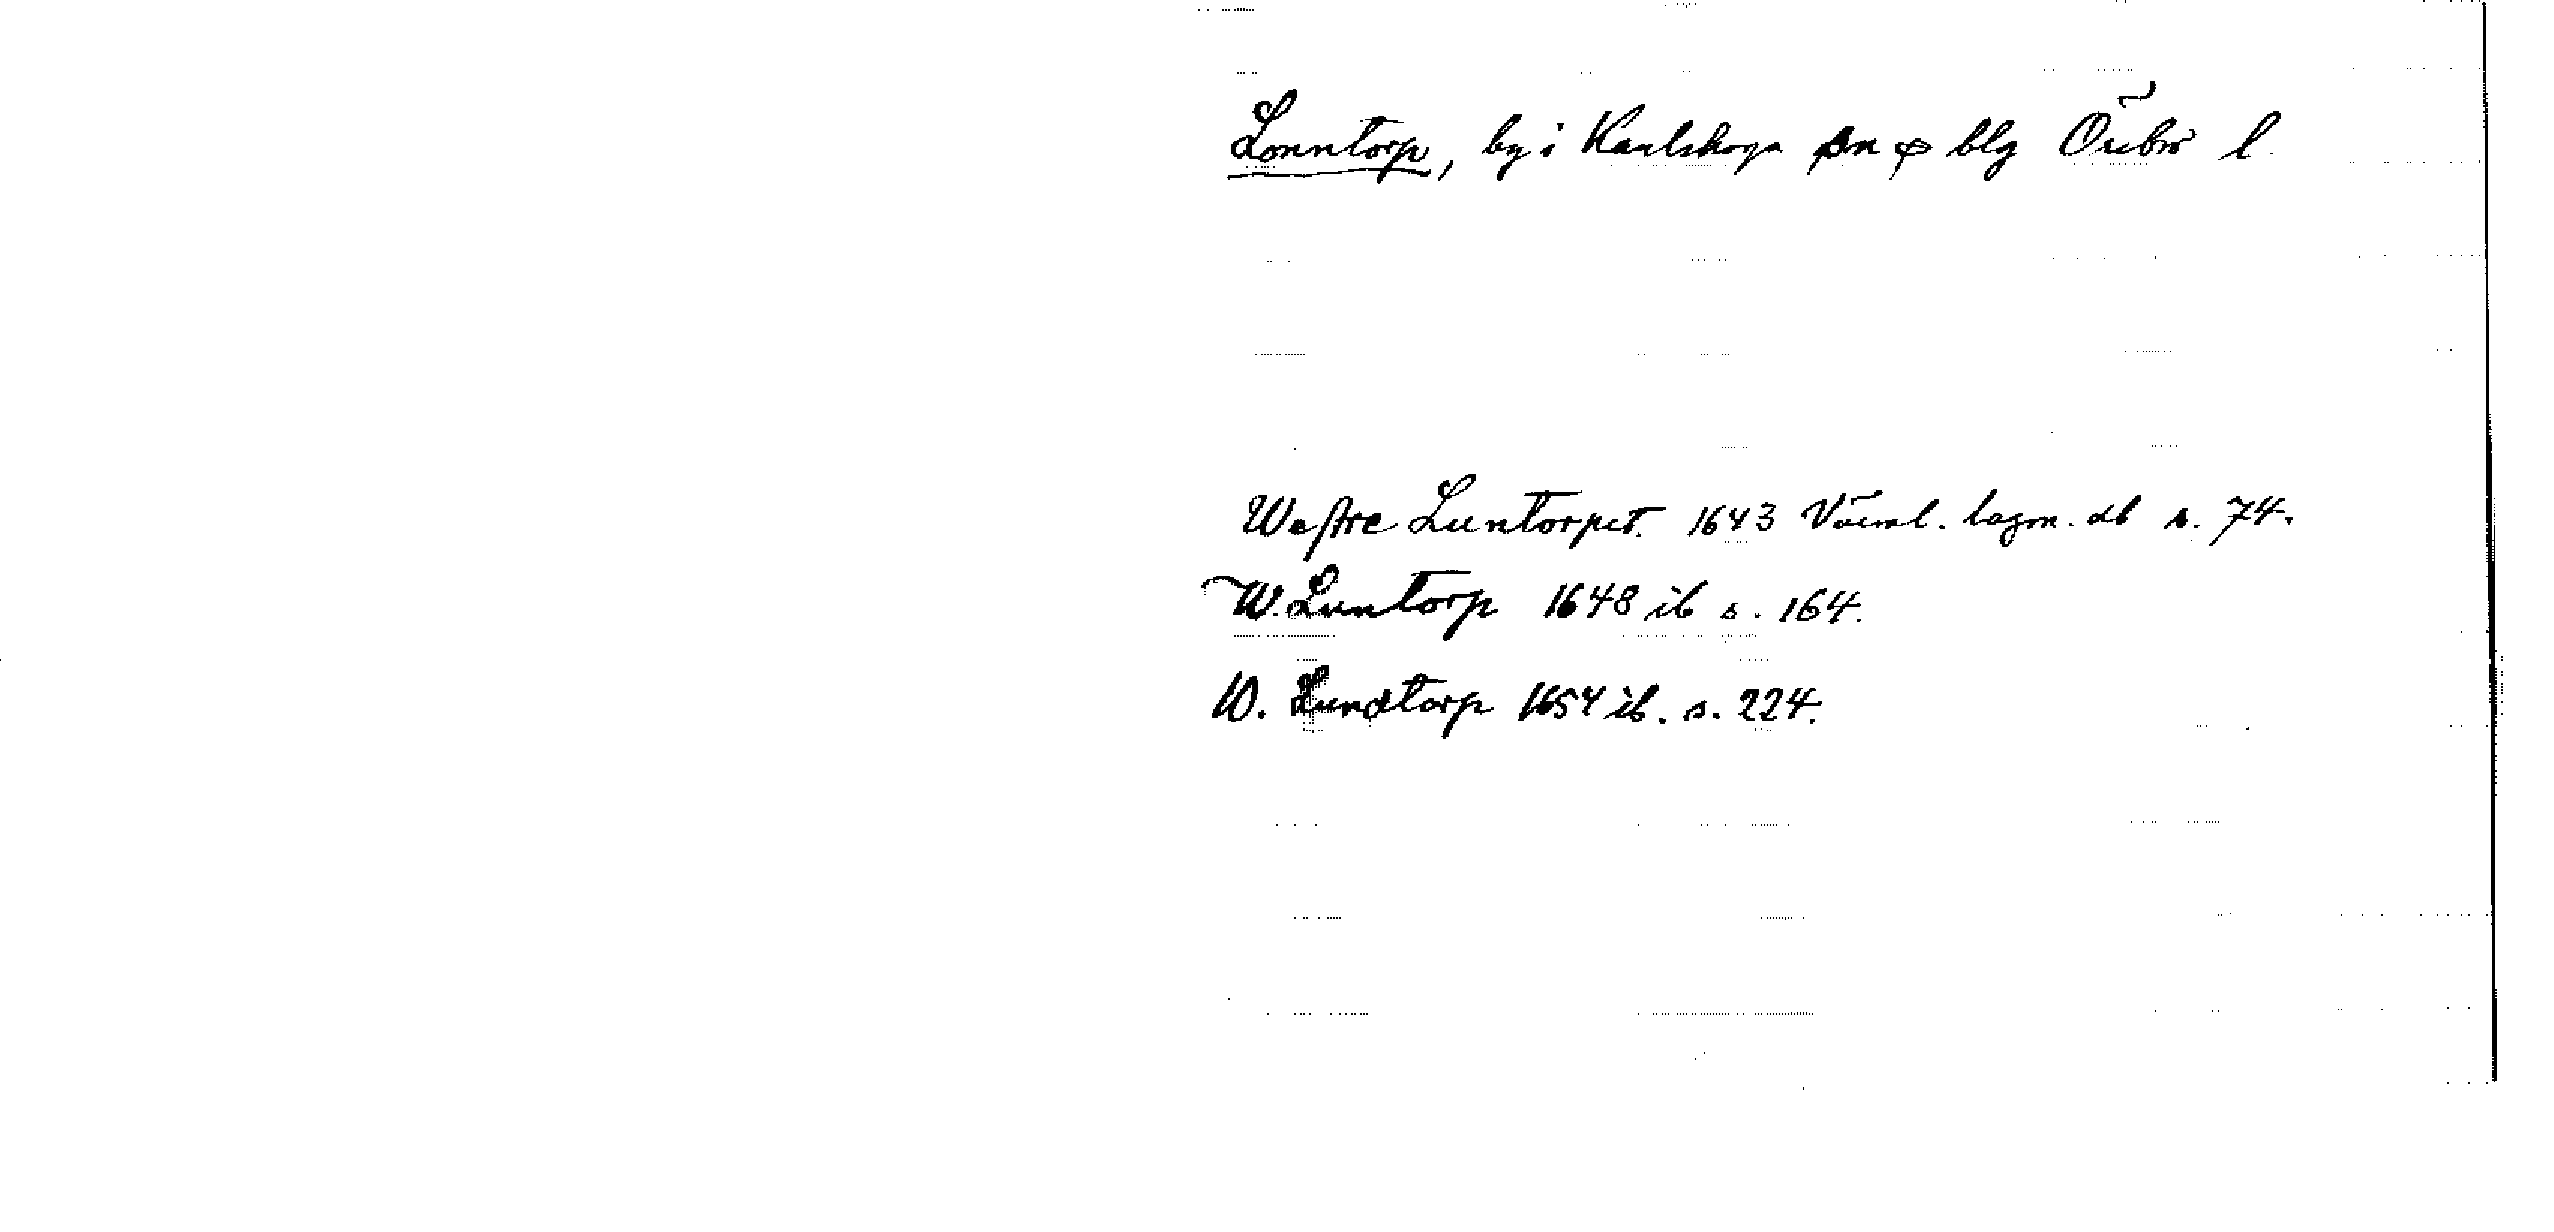 Lonntorp, by i Karlskoga sn o blg Örebro l.
Westre Luntorpet. 1643 Värml. lagm. db s. 74.
W. Luntorp 1648 ib s. 164.
W. Lundtorp 1654 ib. s. 224.